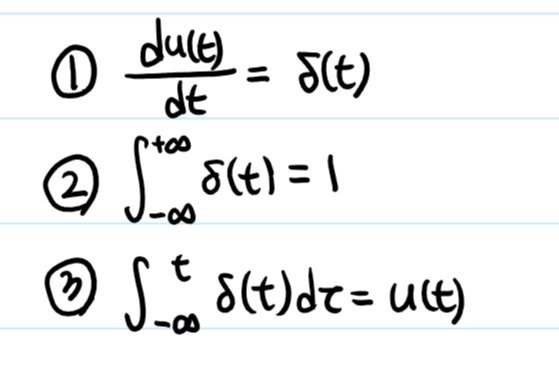 ① du(t)/dt = δ(t)
② ∫_{-∞}^{+∞} δ(t) = 1
③ ∫_{-∞}^{t} δ(t)dτ = u(t)